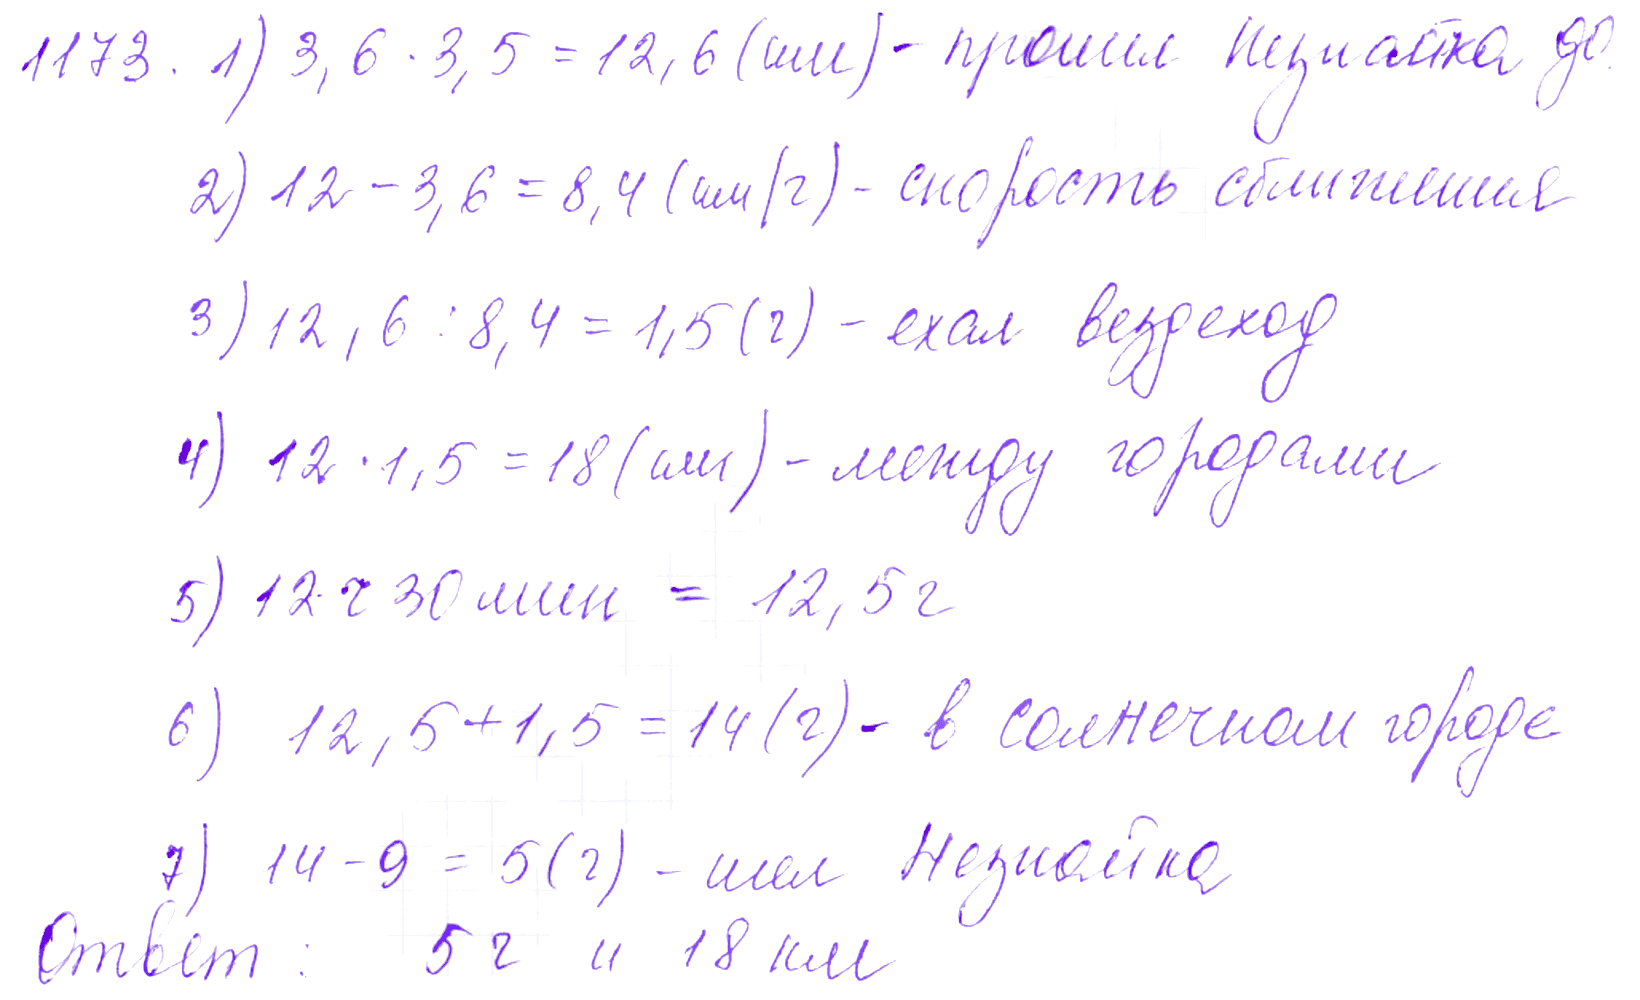 1173. 1) 3,6 · 3,5 = 12,6 (км) - прошел Незнайка до.
2) 12 - 3,6 = 8,4 (км/ч) - скорость сближения
3) 12,6 : 8,4 = 1,5 (ч) - ехал вездеход
4) 12 · 1,5 = 18 (км) - между городами
5) 12 ч 30 мин = 12,5 ч
6) 12,5 + 1,5 = 14 (ч) - в солнечном городе
7) 14 - 9 = 5 (ч) - шел Незнайка
Ответ: 5 ч и 18 км